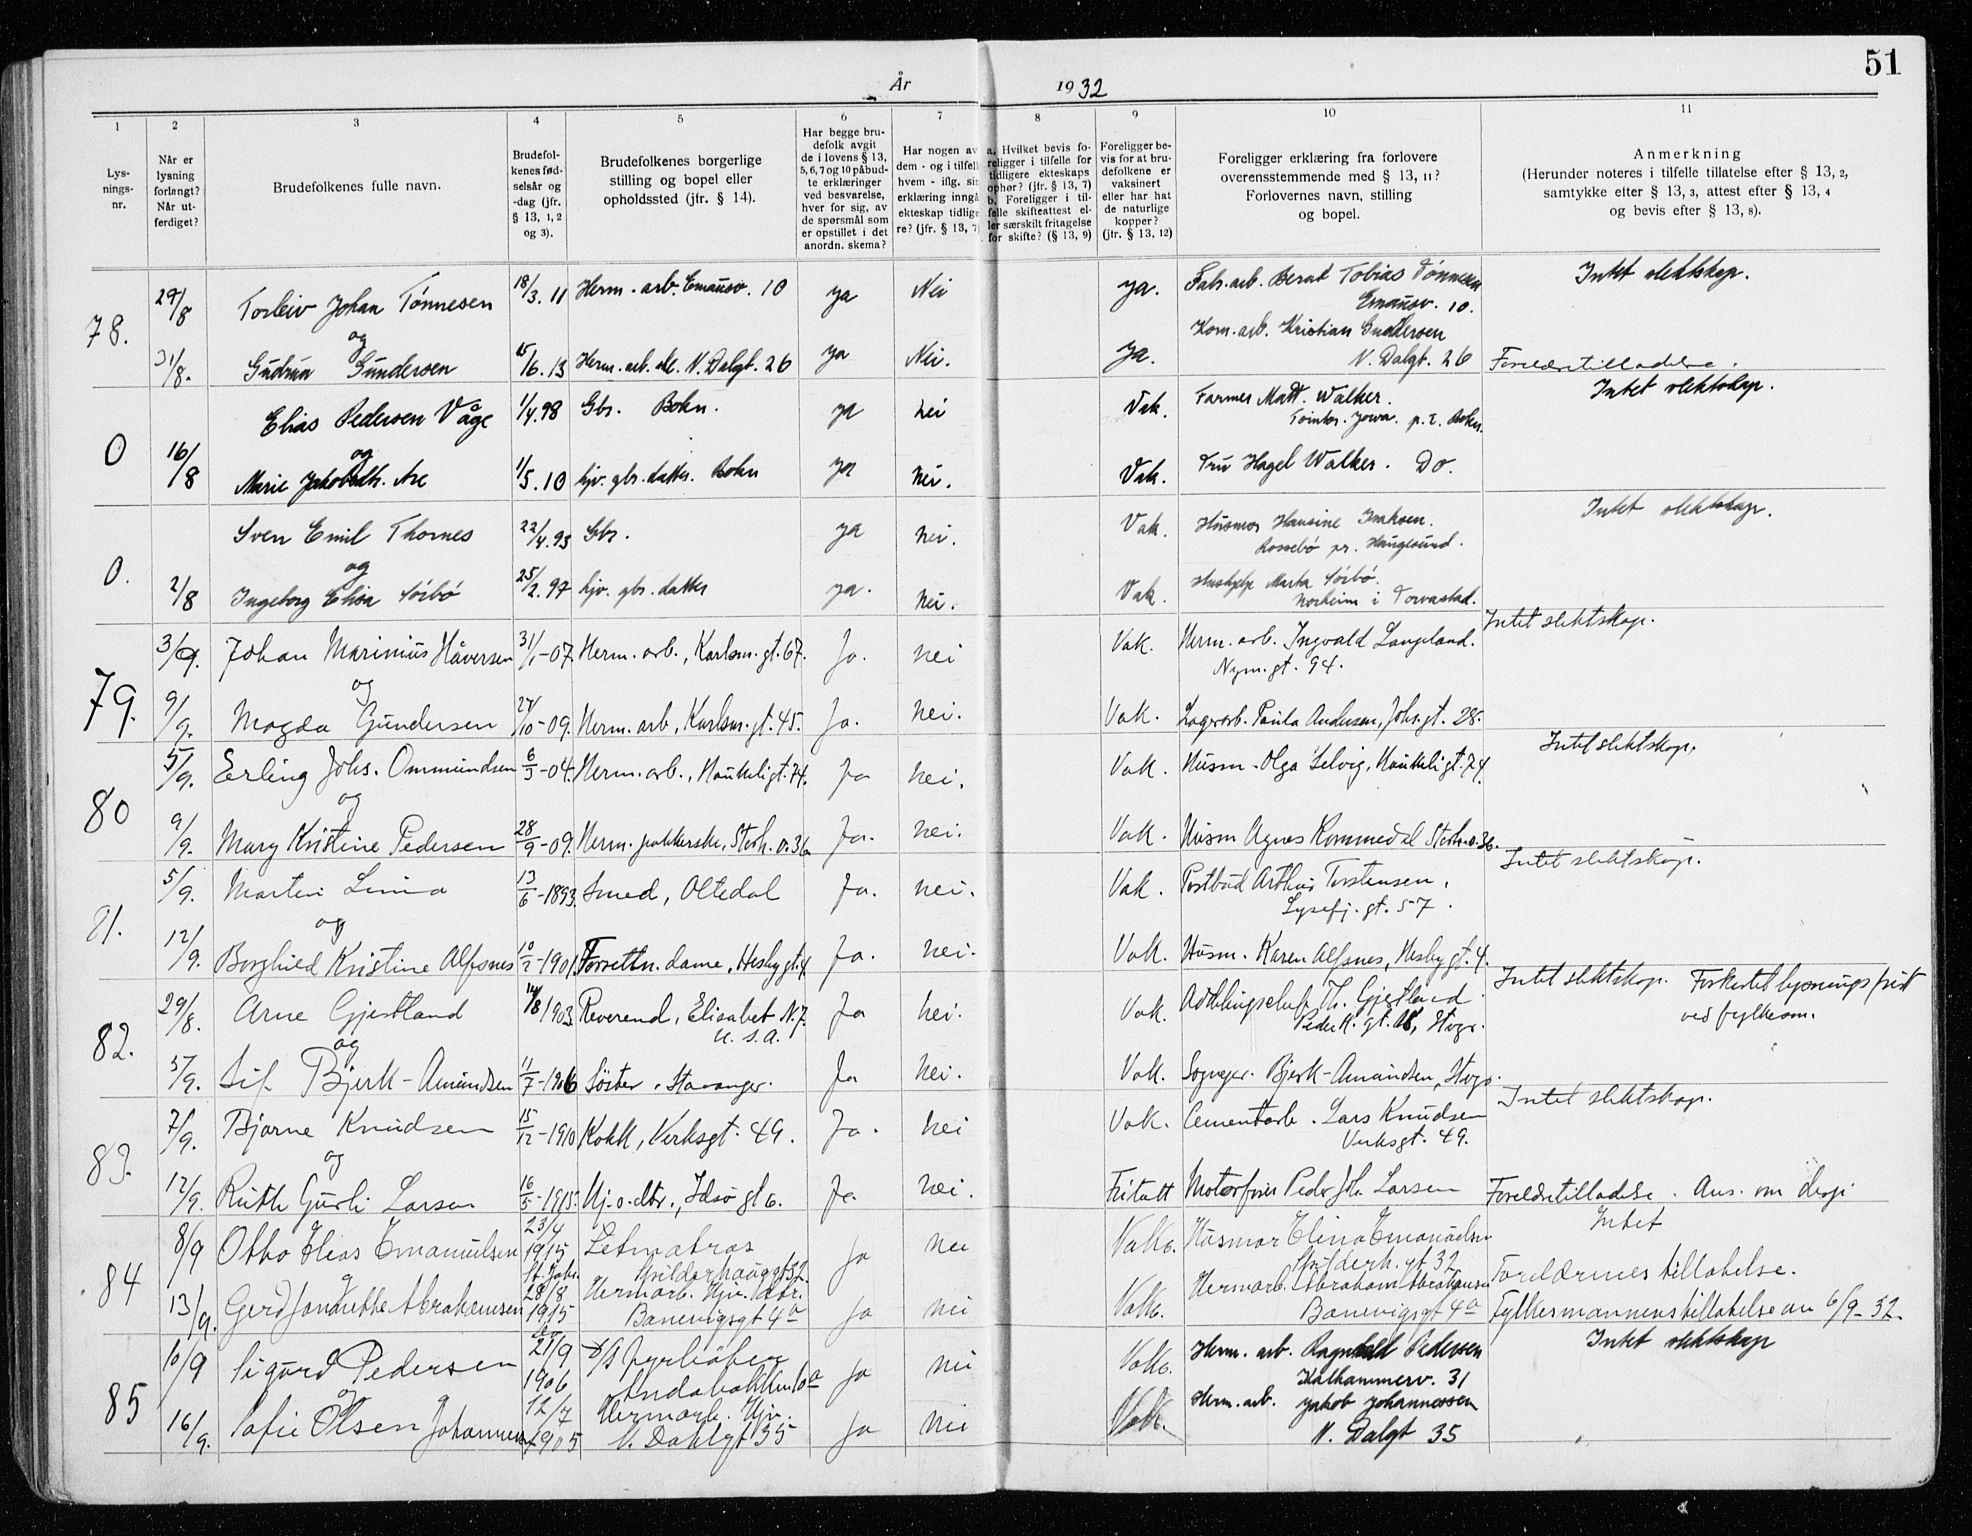 51
År 1932
1 2 3 4 5 6 7 8 9 10 11
Lys-
nings-
nr.
Når er
lysning
forlangt?
Når ut-
ferdiget?
Brudefolkenes fulle navn.
Brudefol-
kenes fød-
selsår og
-dag (jfr.
§ 13, 1, 2
og 3).
Brudefolkenes borgerlige
stilling og bopel eller
opholdssted (jfr. § 14).
Har begge bru-
defolk avgit
de i lovens § 13,
5, 6, 7 og 10 påbud-
te erklæringer
ved besvarelse,
hver for sig, av
de spørsmål som
er opstillet i det
anordn. skema?
Har nogen av
dem - og i tilfell
hvem - iflg. sin
erklæring inngå
ekteskap tidlige
re? (jfr. § 13, 7)
a. Hvilket bevis fo-
religger i tilfelle for
tidligere ekteskaps
ophør? (jfr. § 13, 7)
b. Foreligger i til-
felle skifteattest el-
ler særskilt fritagelse
for skifte? (§ 13, 9)
Foreligger be-
vis for at bru-
defolkene er
vaksinert
eller har hat
de naturlige
kopper?
(jfr. § 13, 12)
Foreligger erklæring fra forlovere
overensstemmende med § 13, 11?
Forlovernes navn, stilling
og bopel.
Anmerkning
(Herunder noteres i tilfelle tillatelse efter § 13, 2,
samtykke efter § 13, 3, attest efter § 13, 4
og bevis efter § 13, 8).
78. 29/8 Torleiv Johan Tønnesen 18/3. 11 Herm. arb. Emausv. 10 ya Nei ya. Fabr. arb. Berat Tobias Tønnesen Intet slektskap.
Emausv. 10.
og Kom. arb. Kristian Gundersen
31/8. Gudrun Gundersen 15/6. 13 Herm. arb. N. Dalgt. 26 ya Nei. ya. N. Dalgt. 26 Foreldretilladelse.
0 Elias Pedersen Våge 1/4. 98 Gbr. Bokn. ya nei Vak. Farmer Matt. Walker. Intet slektskap.
Jowa. p. t. Bokn.
og
16/8 Marie Jakobdtr. Are 1/5. 10 hjv. gbr. datter. Bokn ya nei. Vak. Fru Hagel Walker. Do.
0. Sven Emil Thornes 22/4. 93 Gbr. ya nei. Vak. Husmor Hansine Isaksen. Intet slektskap.
Rossebø pr. Haugesund.
og
2/8 Ingeborg Elisa Sørbø 25/2. 97 hjv. gbr. datter ya. nei. Vak. Hushjelp Marta Sørbø.
Norheim i Torvastad.
79. 3/9. Johan Marinius Håversen 31/1-07. Herm. arb., Karlsm. gt. 67. Ja. nei Vak. Herm. arb. Ingvald Langeland. Intet slektskap.
Nym. gt. 94.
og
9/9. Magda Gundersen 27/10-09. Herm. arb, Karlsm. gt. 45. Ja. nei. Vak. Lagerarb. Paula Andersen, Johs. gt. 28.
80 5/9. Erling Johs. Ommundsen 6/3-04. Herm. arb., Haukeligt. 74. Ja nei. Vak. Husm. Olga Selvig, Haukeligt. 74. Intet slektskap.
og
9/9. Mary Kristine Pedersen 28/9-09. Herm. pakkerske, Storh. v. 36. Ja. nei. Vak. Husm Agnes Rommedal Storh. v. 36.
81. 5/9. Martin Lima 13/6-1893. Smed, Oltedal Ja. nei. Vak. Postbud Arthur Torstensen, Intet slektskap.
Lysefj. gt. 57.
og
12/9. Borghild Kristine Alfsnes 10/2-1901. Forretn. dame, Hesbygt. 4 Ja. nei. Vak. Husm. Karen Alfsnes, Hesbygt. 4.
82. 29/8. Arne Gjestland 14/8 1903. Reverend, Elisabet N. J. Ja nei. Vak. Avdelingschef Th. Gjestland Intet slektskap. Forkortet lysningsfrist
U. S. A. Peder K. gt. 18, Stvgr. ved fylkesm.
og
5/9. Sif Bjerk-Amundsen 11/7-1906 Søster, Stavanger. Ja nei. Vak. Sogneger. Bjerk-Amundsen, Stvgr.
83. 7/9. Bjarne Knudsen 15/12-1910 Kokk, Verksgt. 49. Ja. nei Vak. Cementarb. Lars Knudsen Intet slektskap.
Verksgt. 49.
og
12/9. Ruth Gurli Larsen 16/5-1915. Hj. v. dtr., Idsøgt 6. Ja. nei. Fritatt Motorfører Peder Joh. Larsen Foreldretilladelse. Ans. om disp.
84 8/9 Otto Elias Emanuelsen 23/4 1915 Letmatros Ja nei Vakc. Husmor Elina Emanuelsen Intet
St. Joh. Spilderhauggt 32. Spilderh. gt 32
og
13/9. Gerd Jonette Abrahamsen 28/8 1915 Hermarb. Hjv. datr. Ja nei Vakc. Hermarb. Abraham Abrahamsen Foreldrenes tillatelse.
do Banevigsgt 4a Banevigsgt 4a Fylkesmannens tillatelse av 6/9-32.
85 10/9 Sigurd Pedersen 21/9 1906 D/S fyrbøter Ja nei Vakc. Herm. arb. Ragnvald Pedersen Intet slektskap
Sandabakken 10a Kalhammerv. 31
og
16/9. Sofie Olsen Johannessen 12/7 1905 Hermarb. Hjv. Ja nei Vakc. Herm. arb. Jakob Johannessen
N. Dahlgt 35 N. Dalgt 35